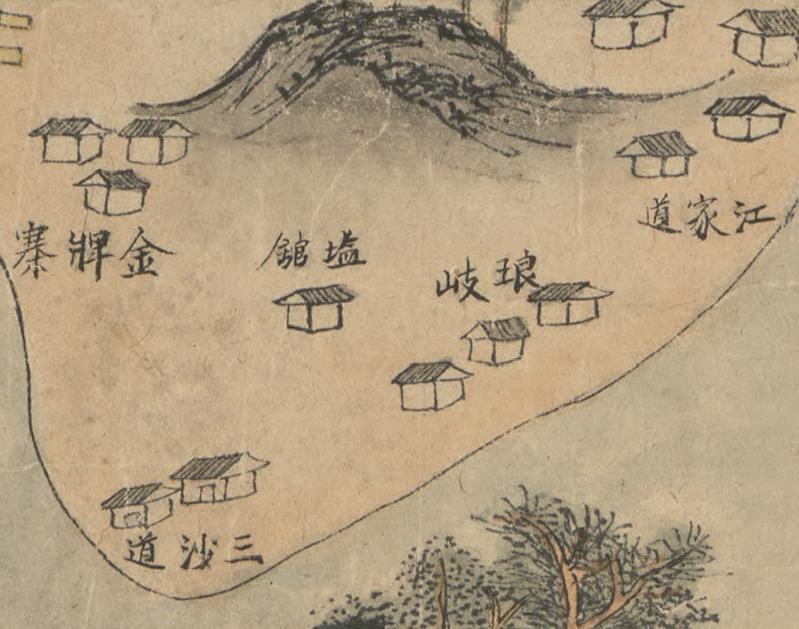 江家道
金牌寨
塩舘
琅岐
三沙道